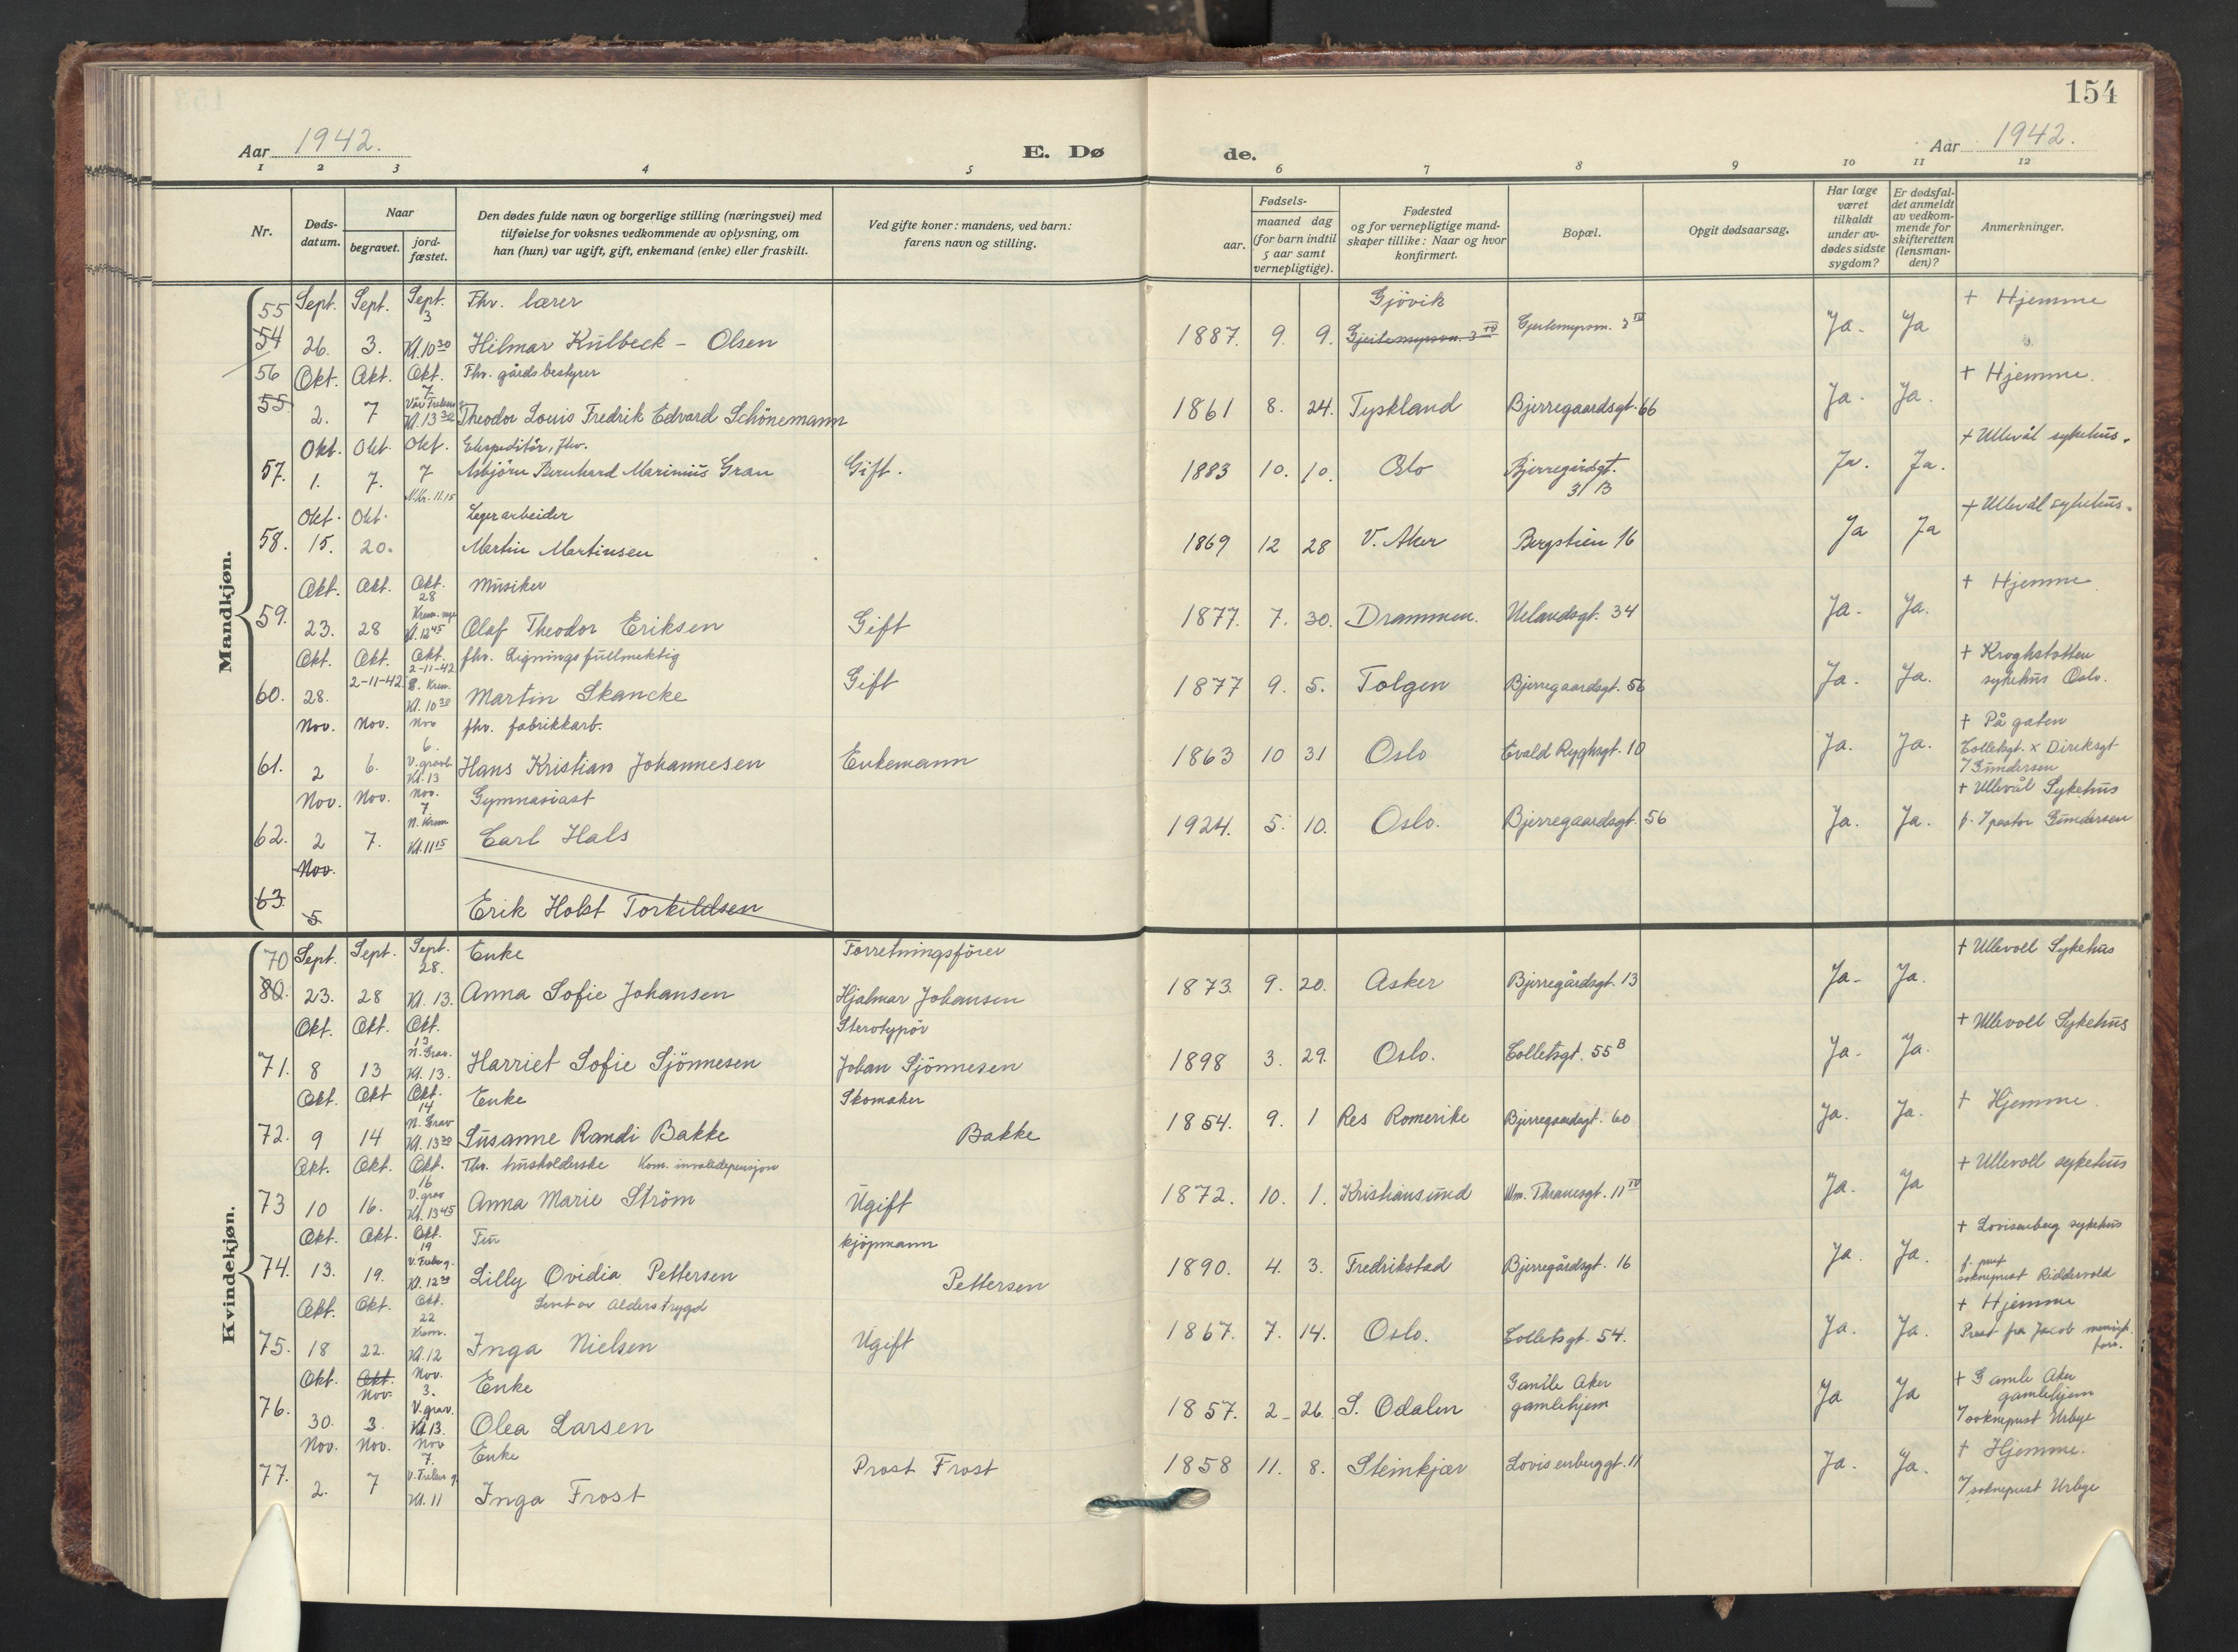 154
Aar 1942.
E. Dø
de.
Aar 1942.
1 2 3 4 5 6 7 8 9 10 11 12
Nr.
Døds-
datum.
Naar
begravet.
jord-
fæstet.
Den dødes fulde navn og borgerlige stilling (næringsvei) med
tilføielse for voksnes vedkommende av oplysning, om
han (hun) var ugift, gift, enkemand (enke) eller fraskilt.
Ved gifte koner: mandens, ved barn:
farens navn og stilling.
Fødsels-
aar.
maaned dag
(for barn indtil
5 aar samt
vernepligtige).
Fødested
og for vernepligtige mand-
skaper tillike: Naar og hvor
konfirmert.
Bopæl.
Opgit dødsaarsag.
Har læge
været
tilkaldt
under av-
dødes sidste
sygdom?
Er dødsfal-
det anmeldt
av vedkom-
mende for
skifteretten
(lensman-
den)?
Anmerkninger.
Mandkjøn.
55 Sept. Sept. Sept. 3 Fhv. lærer Gjövik + Hjemme
54 26. 3. Kl. 10 30 Hilmar Kulbeck - Olsen 1887. 9. 9. Gjeitemyrsvn. 3 IV Gjeitemyrsvn. 3 IV Ja. Ja
56 Okt. Okt. Okt. 7 Fhv. gårdsbestyrer + Hjemme.
55. 2. 7 Kl. 13 30 Theodor Louis Fredrik Edvard Schönemann 1861 8. 24. Tyskland Bjerregaardsgt. 66 Ja. Ja.
Okt. Okt. Okt. Ekspeditör, fhv. + Ullevål sykehus.
57. 1. 7. 7 N.Kr. 11.15 Asbjörn Bernhard Marinius Gran Gift. 1883 10. 10. Oslo Bjerregårdsgt. 31 B Ja. Ja.
Okt. Okt. Lagerarbeider + Ullevål sykehus.
58. 15. 20. Martin Martinsen 1869 12 28 V. Aker Bergstien 16 Ja Ja
Okt. Okt. Okt. 28 Musiker + Hjemme
59. 23. 28 Krem. nye Kl. 12 45 Olaf Theodor Eriksen Gift 1877. 7. 30. Drammen. Uelandsgt. 34 Ja. Ja.
Okt. Okt. Okt. fhv. Ligningsfullmektig + Kroghstotten
60. 28. 2-11-42 2-11-42 Krem. Kl. 10 30 Martin Skancke Gift 1877 9. 5. Tolgen Bjerregaardsgt. 56 Ja. Ja. sykehus Oslo.
Nov. Nov. Nov 6. fhv. fabrikkarb. + På gaten
61. 2 6. Kl. 13 Hans Kristian Johannesen Enkemann 1863 10 31 Oslo Evald Ryghsgt. 10 Ja. Ja. Colletsgt. x Diriksgt
Gundersen
Nov. Nov. Nov. 7 Gymnasiast + Ullevål Sykehus
62. 2 7. N. Krem Kl. 11 15 Carl Hals 1924. 5. 10. Oslo. Bjerregaardsgt. 56 Ja. Ja. pastor Gundersen
Nov.
63. 5 Erik Holst Torkildsen
Kvindekjøn.
70 Sept. Sept. Sept. 28. Enke Forretningsförer + Ullevoll Sykehus
80. 23. 28 Kl. 13. Anna Sofie Johansen Hjalmar Johansen 1873. 9. 20. Asker Bjerregårdsgt. 13 Ja. Ja.
Okt. Okt. Okt. 13 Sterotypör + Ullevoll Sykehus
71. 8 13 N. Grav. Kl. 13. Harriet Sofie Sjönnesen Johan Sjönnesen 1898 3. 29. Oslo. Colletsgt. 55 B Ja. Ja.
Okt. Okt Okt. 14 Enke Skomaker + Hjemme.
72. 9 14 N. Grav Kl. 13 30 Susanne Randi Bakke Bakke 1854. 9. 1 Res Romerike Bjerregaardsgt. 60 Ja. Ja.
Okt. Okt. Okt. 16 Fhv. husholderske Kom. invalidepensjon + Ullevoll sykehus
73 10 16. V. grav Kl. 13 45 Anna Marie Ström Ugift 1872. 10. 1. Kristiansund Wm. Thranesgt. 11 IV Ja. Ja
Okt. Okt. Okt. 19 Fru kjøpmann + Lovisenberg sykehus
74. 13. 19. Kl. 12 30 Lilly Ovidia Pettersen Pettersen 1890. 4. 3. Fredrikstad Bjerregårdsgt. 16 Ja. Ja. sokneprest Riddervold
Okt. Okt. Okt. 22 Levet av Alderstrygd + Hjemme
75. 18 22. Krem. Kl. 12 Inga Nielsen Ugift 1867. 7. 14. Oslo. Colletsgt. 54. Ja. Ja. Prest fra Jacob menigh.
Okt. Okt. Nov. Nov. 3. Enke Gamle Aker + Gamle Aker
76. 30. 3. V. grav. Kl. 13. Olea Larsen 1857. 2 26 S. Odalen gamlehjem Ja Ja gamlehjem
sokneprest Urbye
Nov. Nov. Nov 7. Enke + Hjemme.
77. 2. 7 Kl. 11 Inga Frost Prost Frost 1858 11. 8. Steinkjær Lovisenberggt. 11 Ja. Ja. sokneprest Urbye